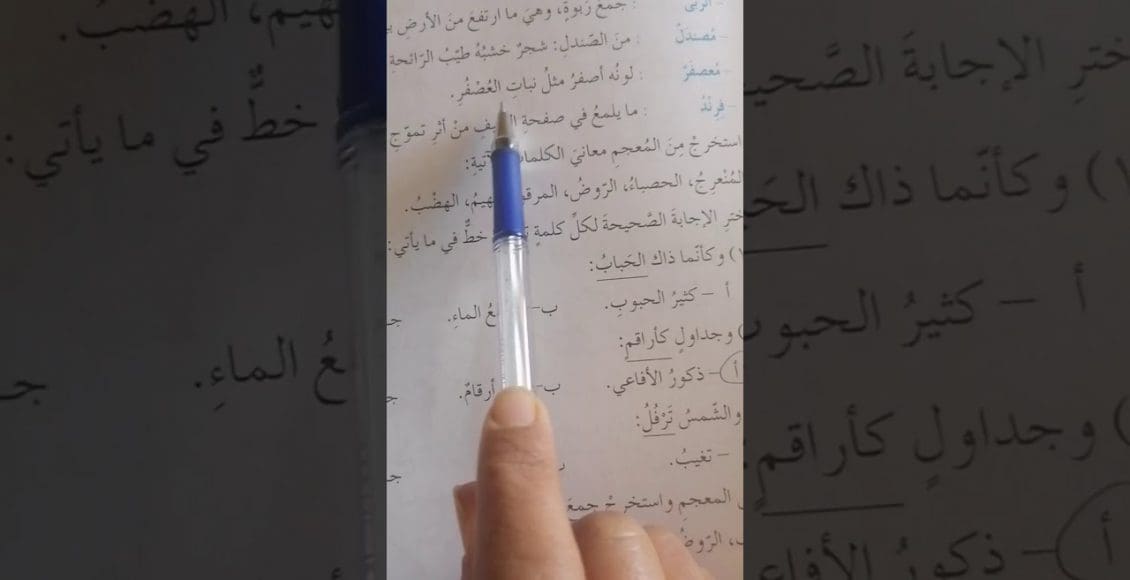 الرُّبى : جمعُ رَبوةٍ، وهيَ ما ارتفعَ منَ الأرضِ
– مُصَندَلٌ : منَ الصّندلِ: شجرٌ خشبُهُ طيّبُ الرّائحةِ
– مُعصفَرٌ : لونُه أصفرُ مثلُ نباتِ العُصْفُرِ.
– فِرِنْدُ : ما يلمعُ في صفحةِ منْ أثرِ تموّجِ
استخرجْ مِنَ المُعجمِ معانيَ الكلماتِ
المُنْعرِجُ، الحصباءُ، الرّوضُ، الهضْبُ.
الإجابةَ الصَّحيحةَ لكلِّ كلمةٍ خطٌّ في ما يأتي:
) وكأنّما ذاك الحَبابُ:
أ – كثيرُ الحبوبِ. ب– الماءِ. جـ
) وجداولٍ كأراقمٍ:
أ – ذكورُ الأفاعي. ب– أرقامٌ. جـ
والشّمسُ تَرْفُلُ:
– تغيبُ. جـ
المعجمِ واستخرجْ جمعَ
الرّوضُ